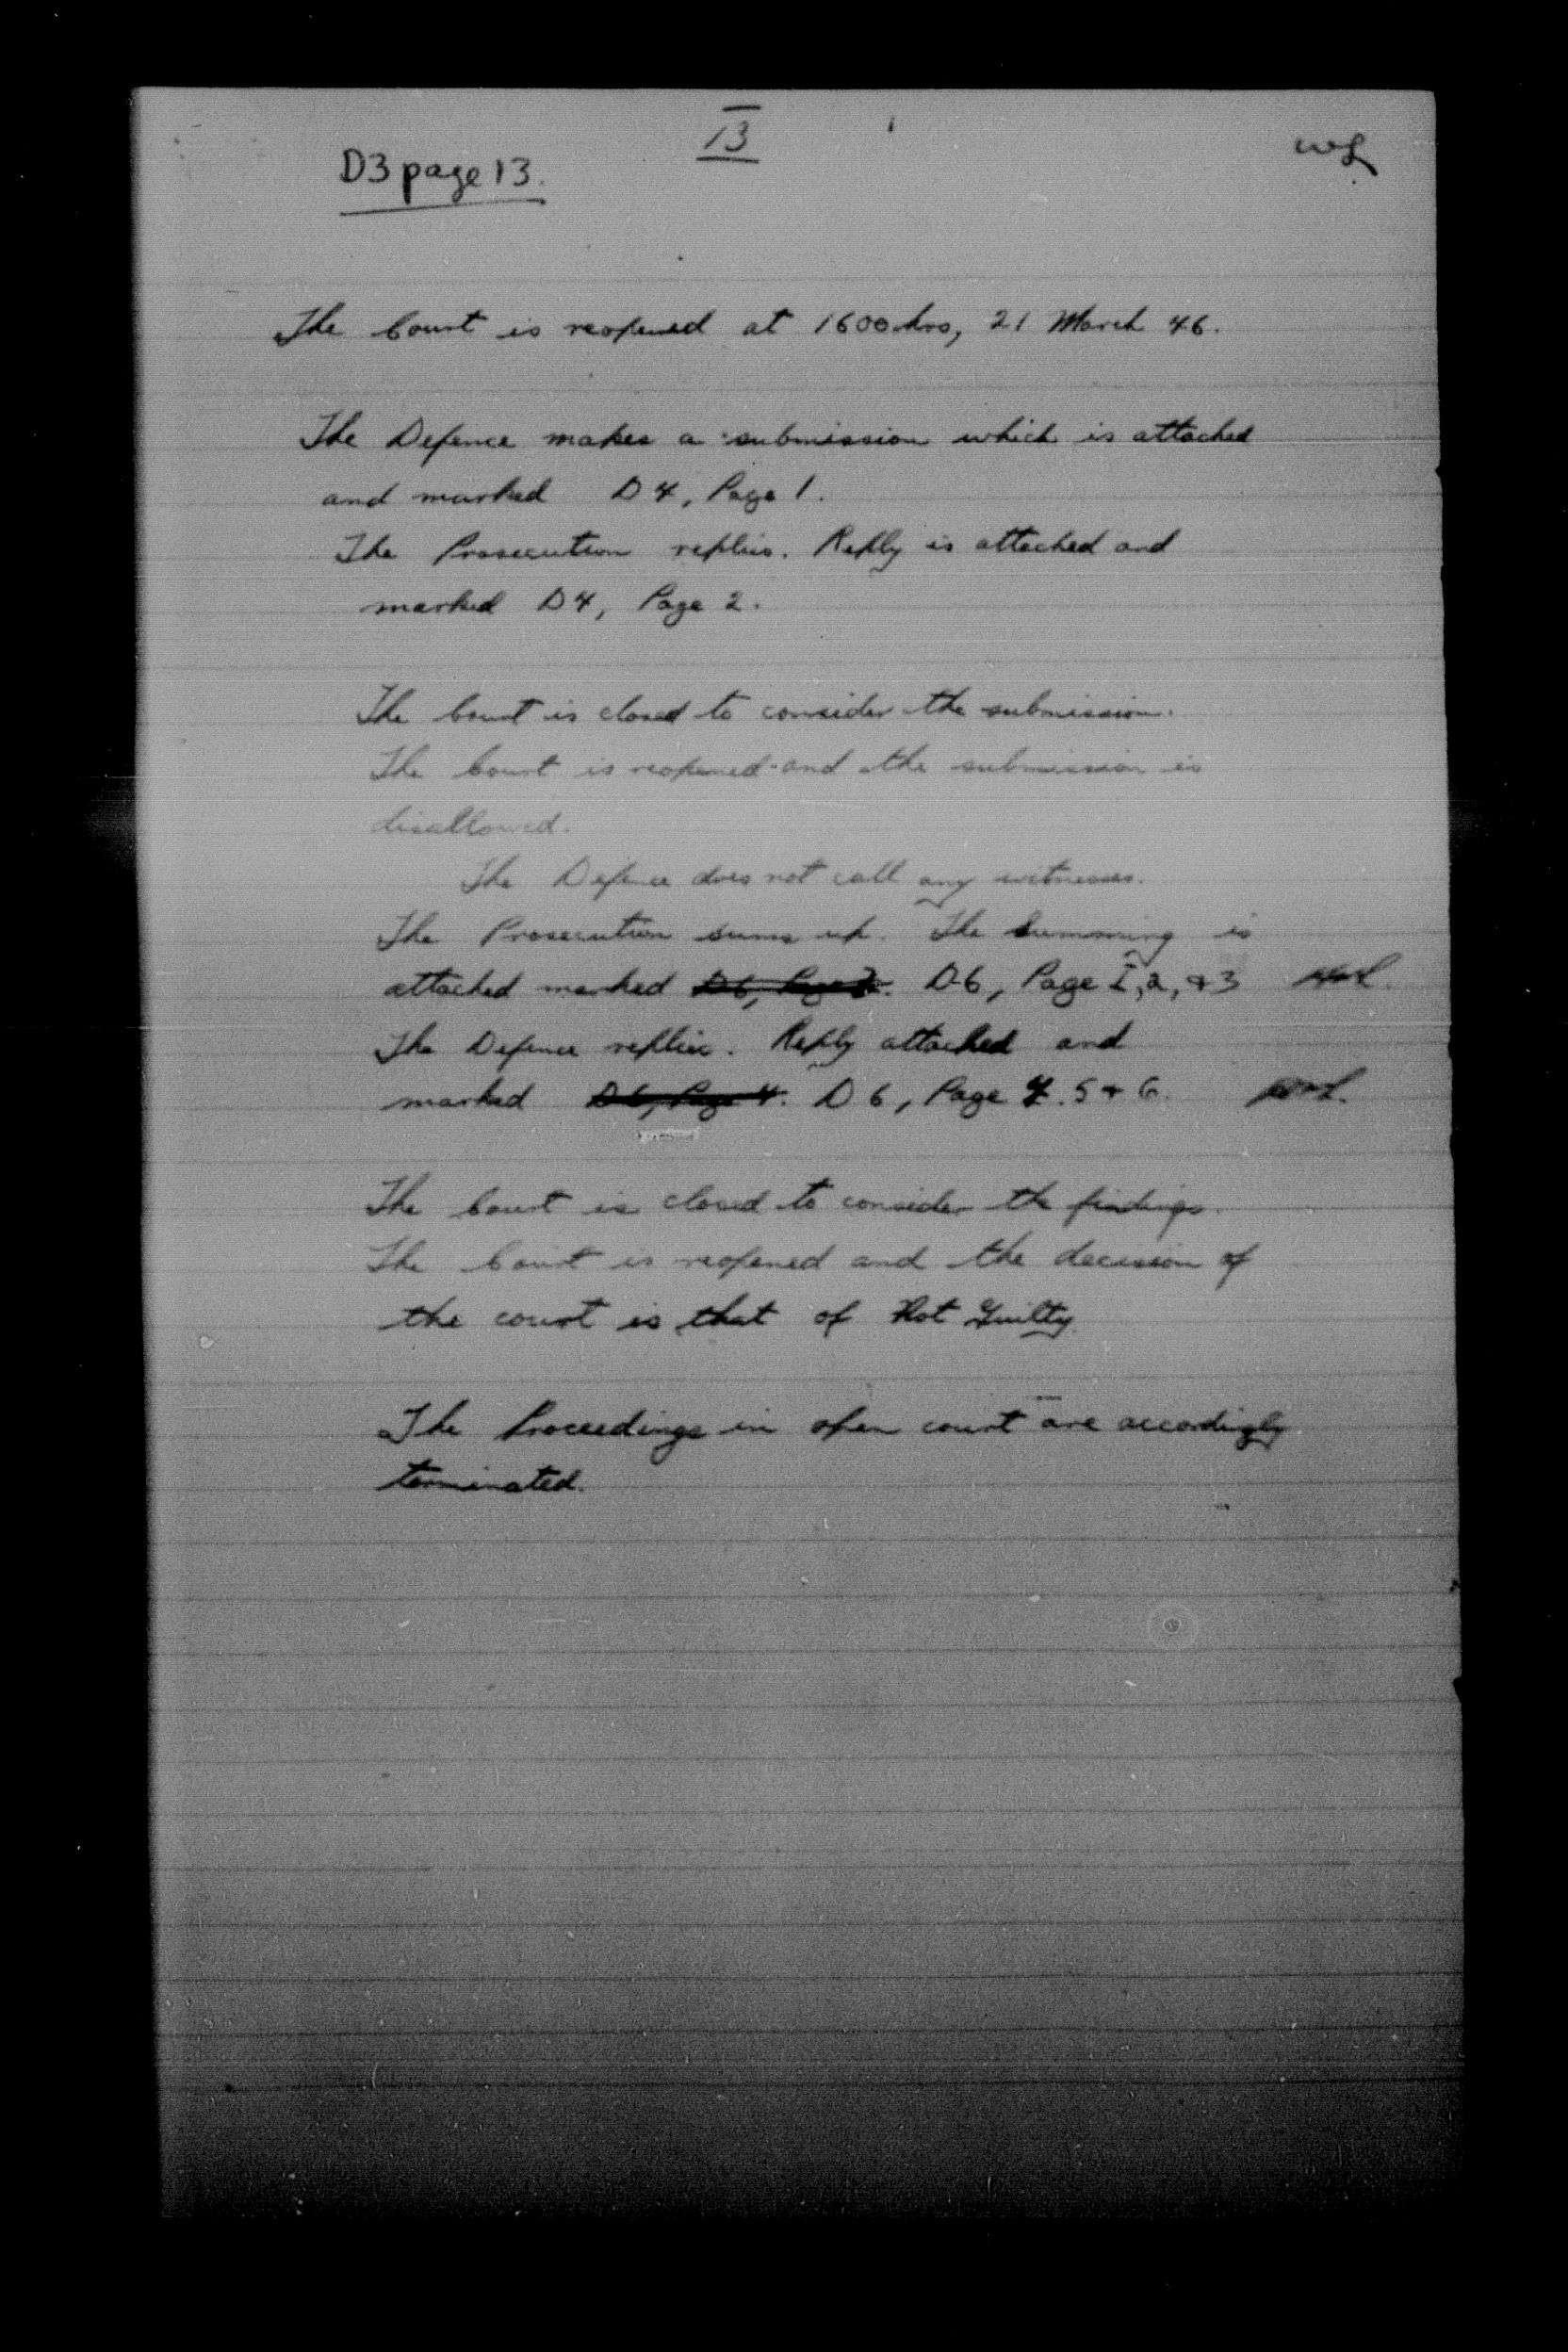 13
D3 page 13.
The Court is reopened at 1600 hrs, 21 March 46.
The Defence makes a submission which is attached
and marked D4, Page 1.
The Prosecution replies. Reply is attached and
marked D4, Page 2.
The Court is closed to consider the submission.
The Court is reopened and the submission is
disallowed.
The Defence does not call any witnesses.
The Prosecution sums up. The summing is
attached marked D6, Page 1, 2, & 3
The Defence replies. Reply attached and
marked D6, Page 4. D6, Page 4. 5 & 6.
The Court is closed to consider the findings.
The Court is reopened and the decision of
the court is that of Not Guilty
The Proceedings in open court are accordingly
terminated.